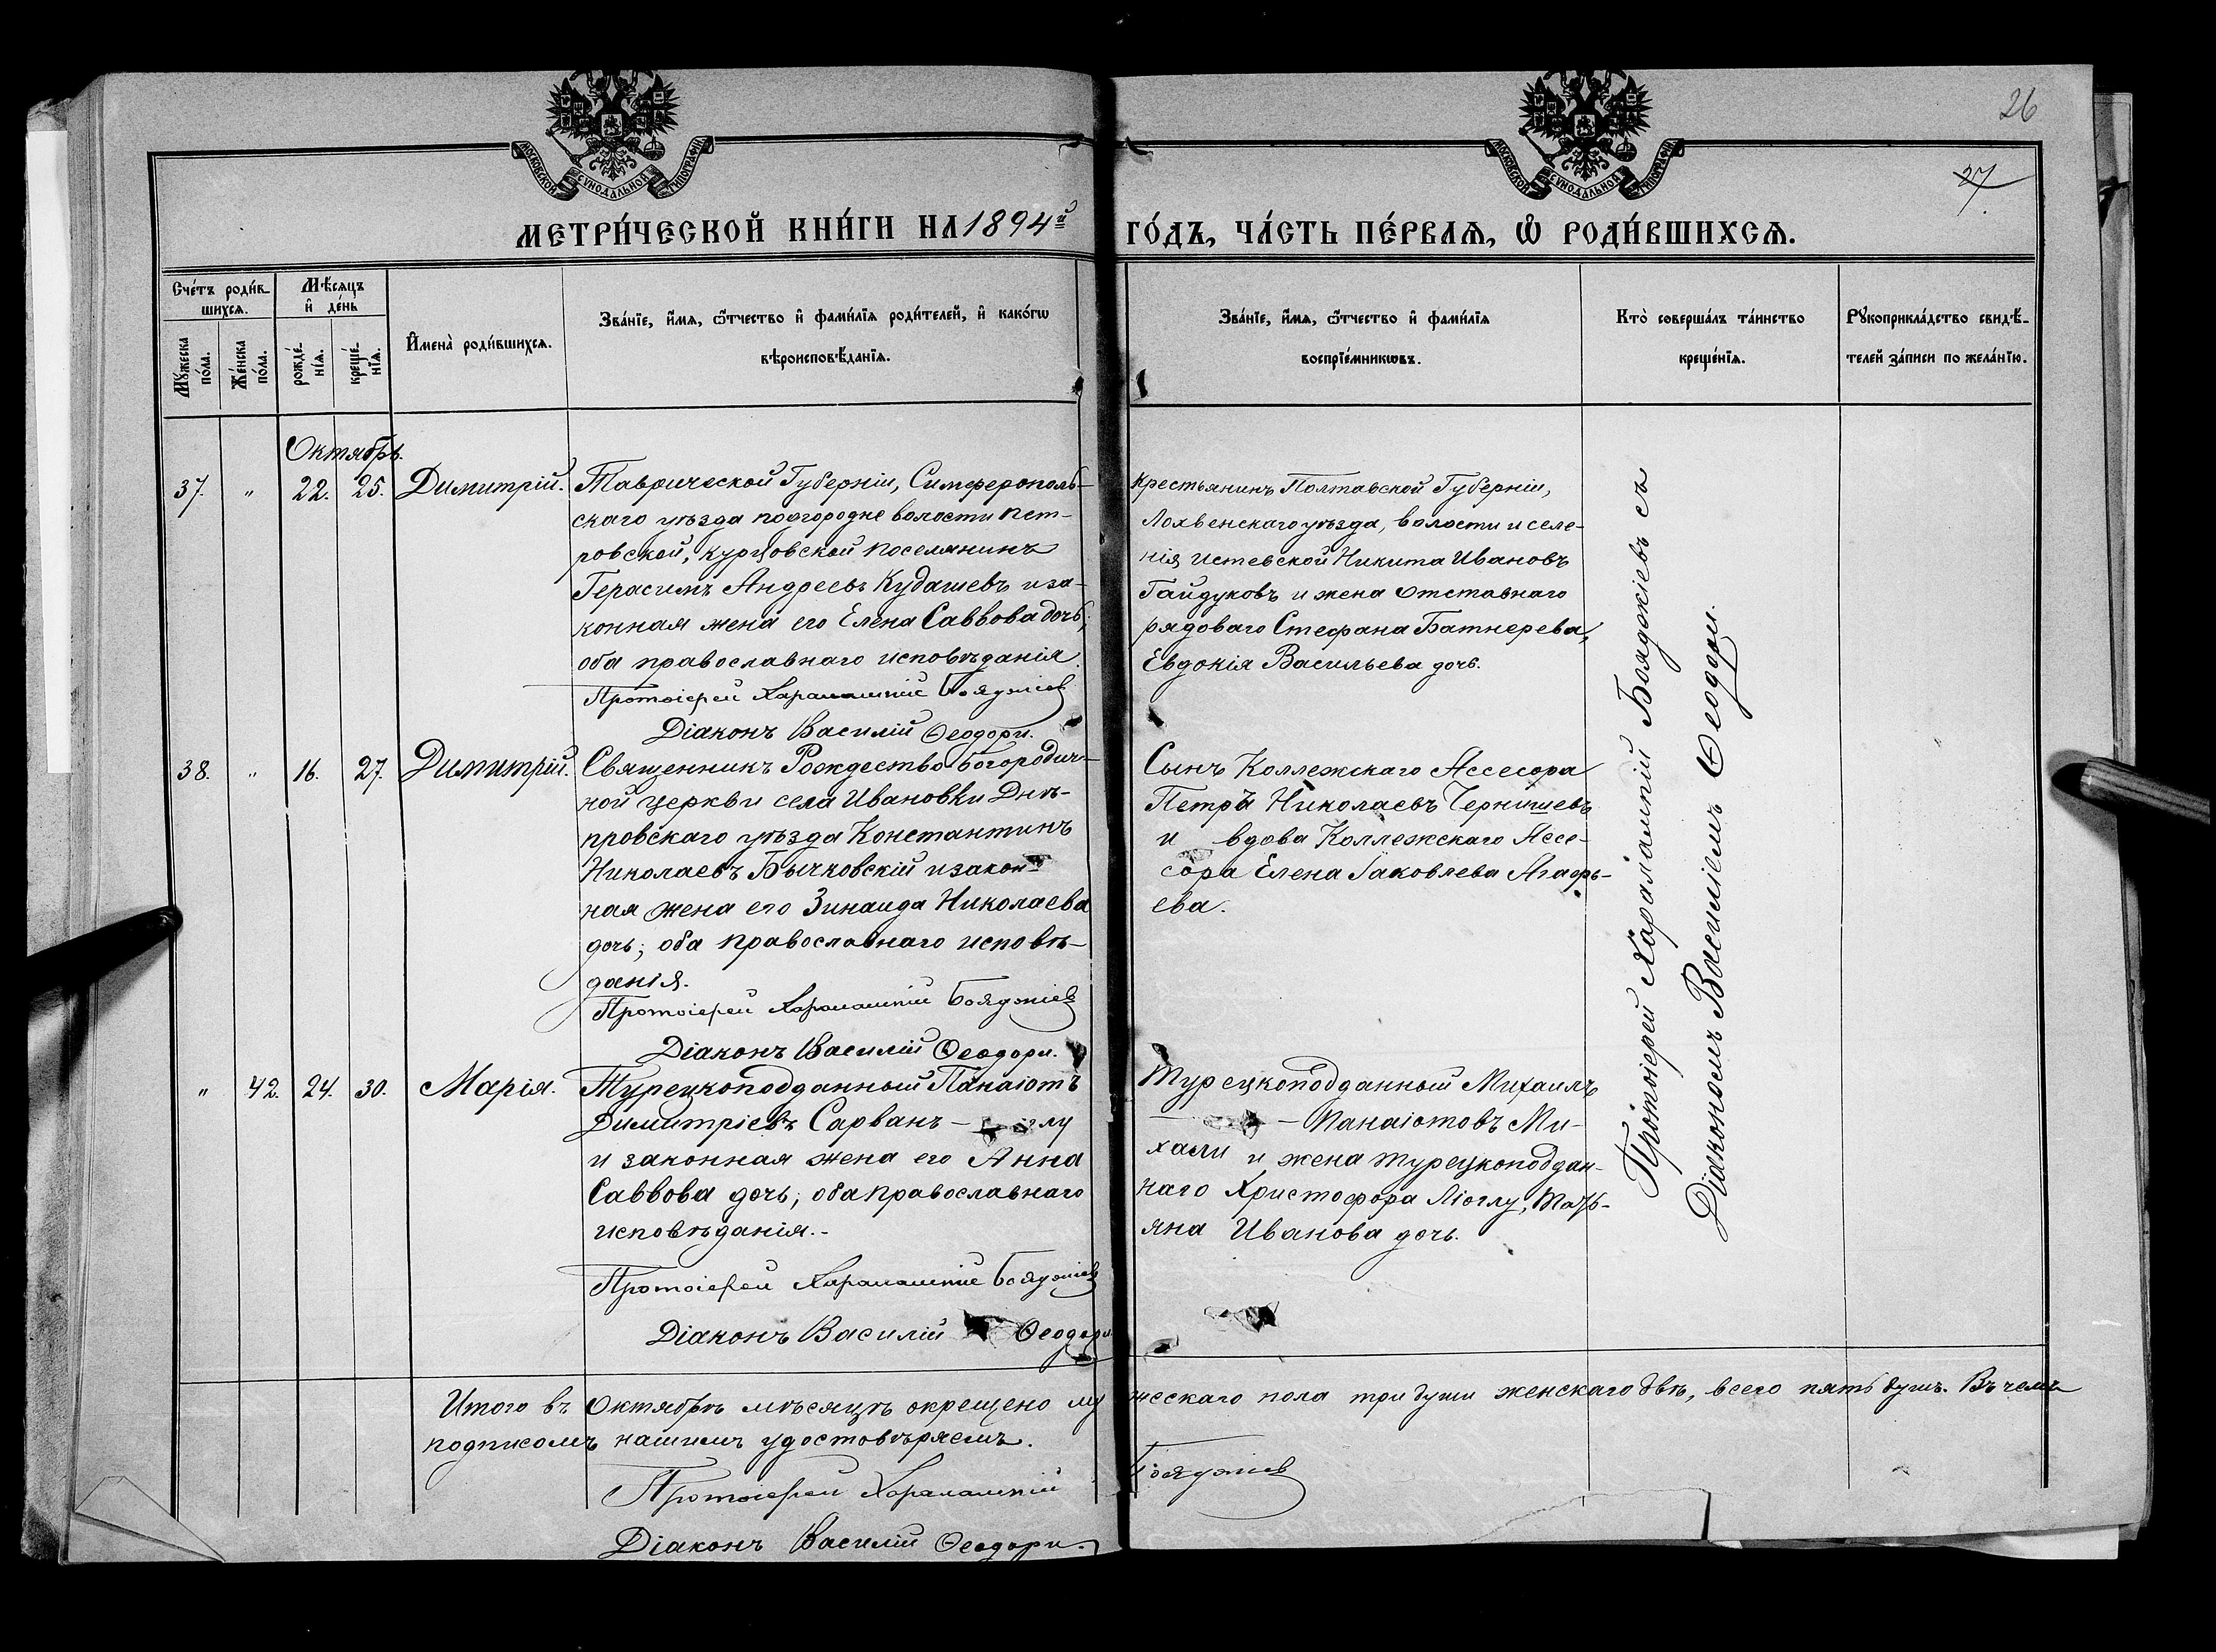 26
27
МОСКОВСКОЙ СѴНОДАЛЬНОЙ ТИПОГРАФІИ
МОСКОВСКОЙ СѴНОДАЛЬНОЙ ТИПОГРАФІИ
МЕТРИ́ЧЕСКОЙ КНИ́ГИ НА 1894й ГО́ДЪ, ЧА́СТЬ ПЕ́РВАѦ, Ѡ҆ РОДИ́ВШИХСѦ.
Сче́тъ роди́в-
шихсѧ.
Мꙋжеска по́ла.
Же́нска по́ла.
Мѣ́сѧцъ
и҆ де́нь
рожде́-
нїѧ.
креще́-
нїѧ.
И҆мена̀ роди́вшихсѧ.
Зва́нїе, и҆́мѧ, ѻ҆́тчество и҆ фами́лїѧ роди́телей, и҆ како́гѡ
вѣроисповѣ́данїѧ.
Зва́нїе, и҆́мѧ, ѻ҆́тчество и҆ фами́лїѧ
воспрїе́мникѡвъ.
Кто̀ соверша́лъ та́инство
креще́нїѧ.
Рꙋкоприкла́дство свидѣ́-
телей за́писи по жела́нїю.
Октябрь.
37. " 22. 25. Димитрій.
Таврической Губерніи, Симферополь-
скаго уѣзда подгородне волости пет-
ровской, курцовской поселянинъ
Герасимъ Андреевъ Кудашевъ и за-
конная жена его Елена Саввова дочь;
оба православнаго исповѣданія.
Протоіерей Харалампій Бояджіев
Діаконъ Василій Ѳеодори.
крестьянинъ Полтавской Губерніи,
Лохвенскаго уѣзда, волости и селе-
нія Истевской Никита Ивановъ
Гайдуковъ и жена отставнаго
рядоваго Стефана Батнерева,
Евдокія Васильева дочь.
38. " 16. 27. Димитрій.
Священникъ Рождество Богородич-
ной церкви села Ивановки Днѣ-
провскаго уѣзда Константинъ
Николаевъ Бычковскій и закон-
ная жена его Зинаида Николаева
дочь; оба православнаго исповѣ-
данія.
Протоіерей Харалампій Бояджіев
Діаконъ Василій Ѳеодори.
Сынъ Коллежскаго Ассесора
Петръ Николаевъ Чернышевъ
и вдова Коллежскаго Ассе-
сора Елена Іаковлева Агафь-
ева.
" 42. 24. 30. Марія.
Турецкоподданный Панаіотъ
Димитріевъ Сарванъ - оглу
и законная жена его Анна
Саввова дочь; оба православнаго
исповѣданія.-
Протоіерей Харалампій Бояджіев
Діаконъ Василій Ѳеодори
Турецкоподданный Михаилъ
- Панаіотовъ Ми-
хали и жена турецкоподдан-
наго Христофора Ліоглу, Тать-
яна Иванова дочь.
Протоіерей Харалампій Бояджіевъ съ
Діакономъ Василіемъ Ѳеодори.
Итого въ Октябрѣ мѣсяцѣ окрещено мужескаго пола три души женскаго двѣ, всего пять душъ. Въ чемъ
подписомъ нашимъ удостовѣряемъ.
Протоіерей Харалампій Бояджіев
Діаконъ Василій Ѳеодори.